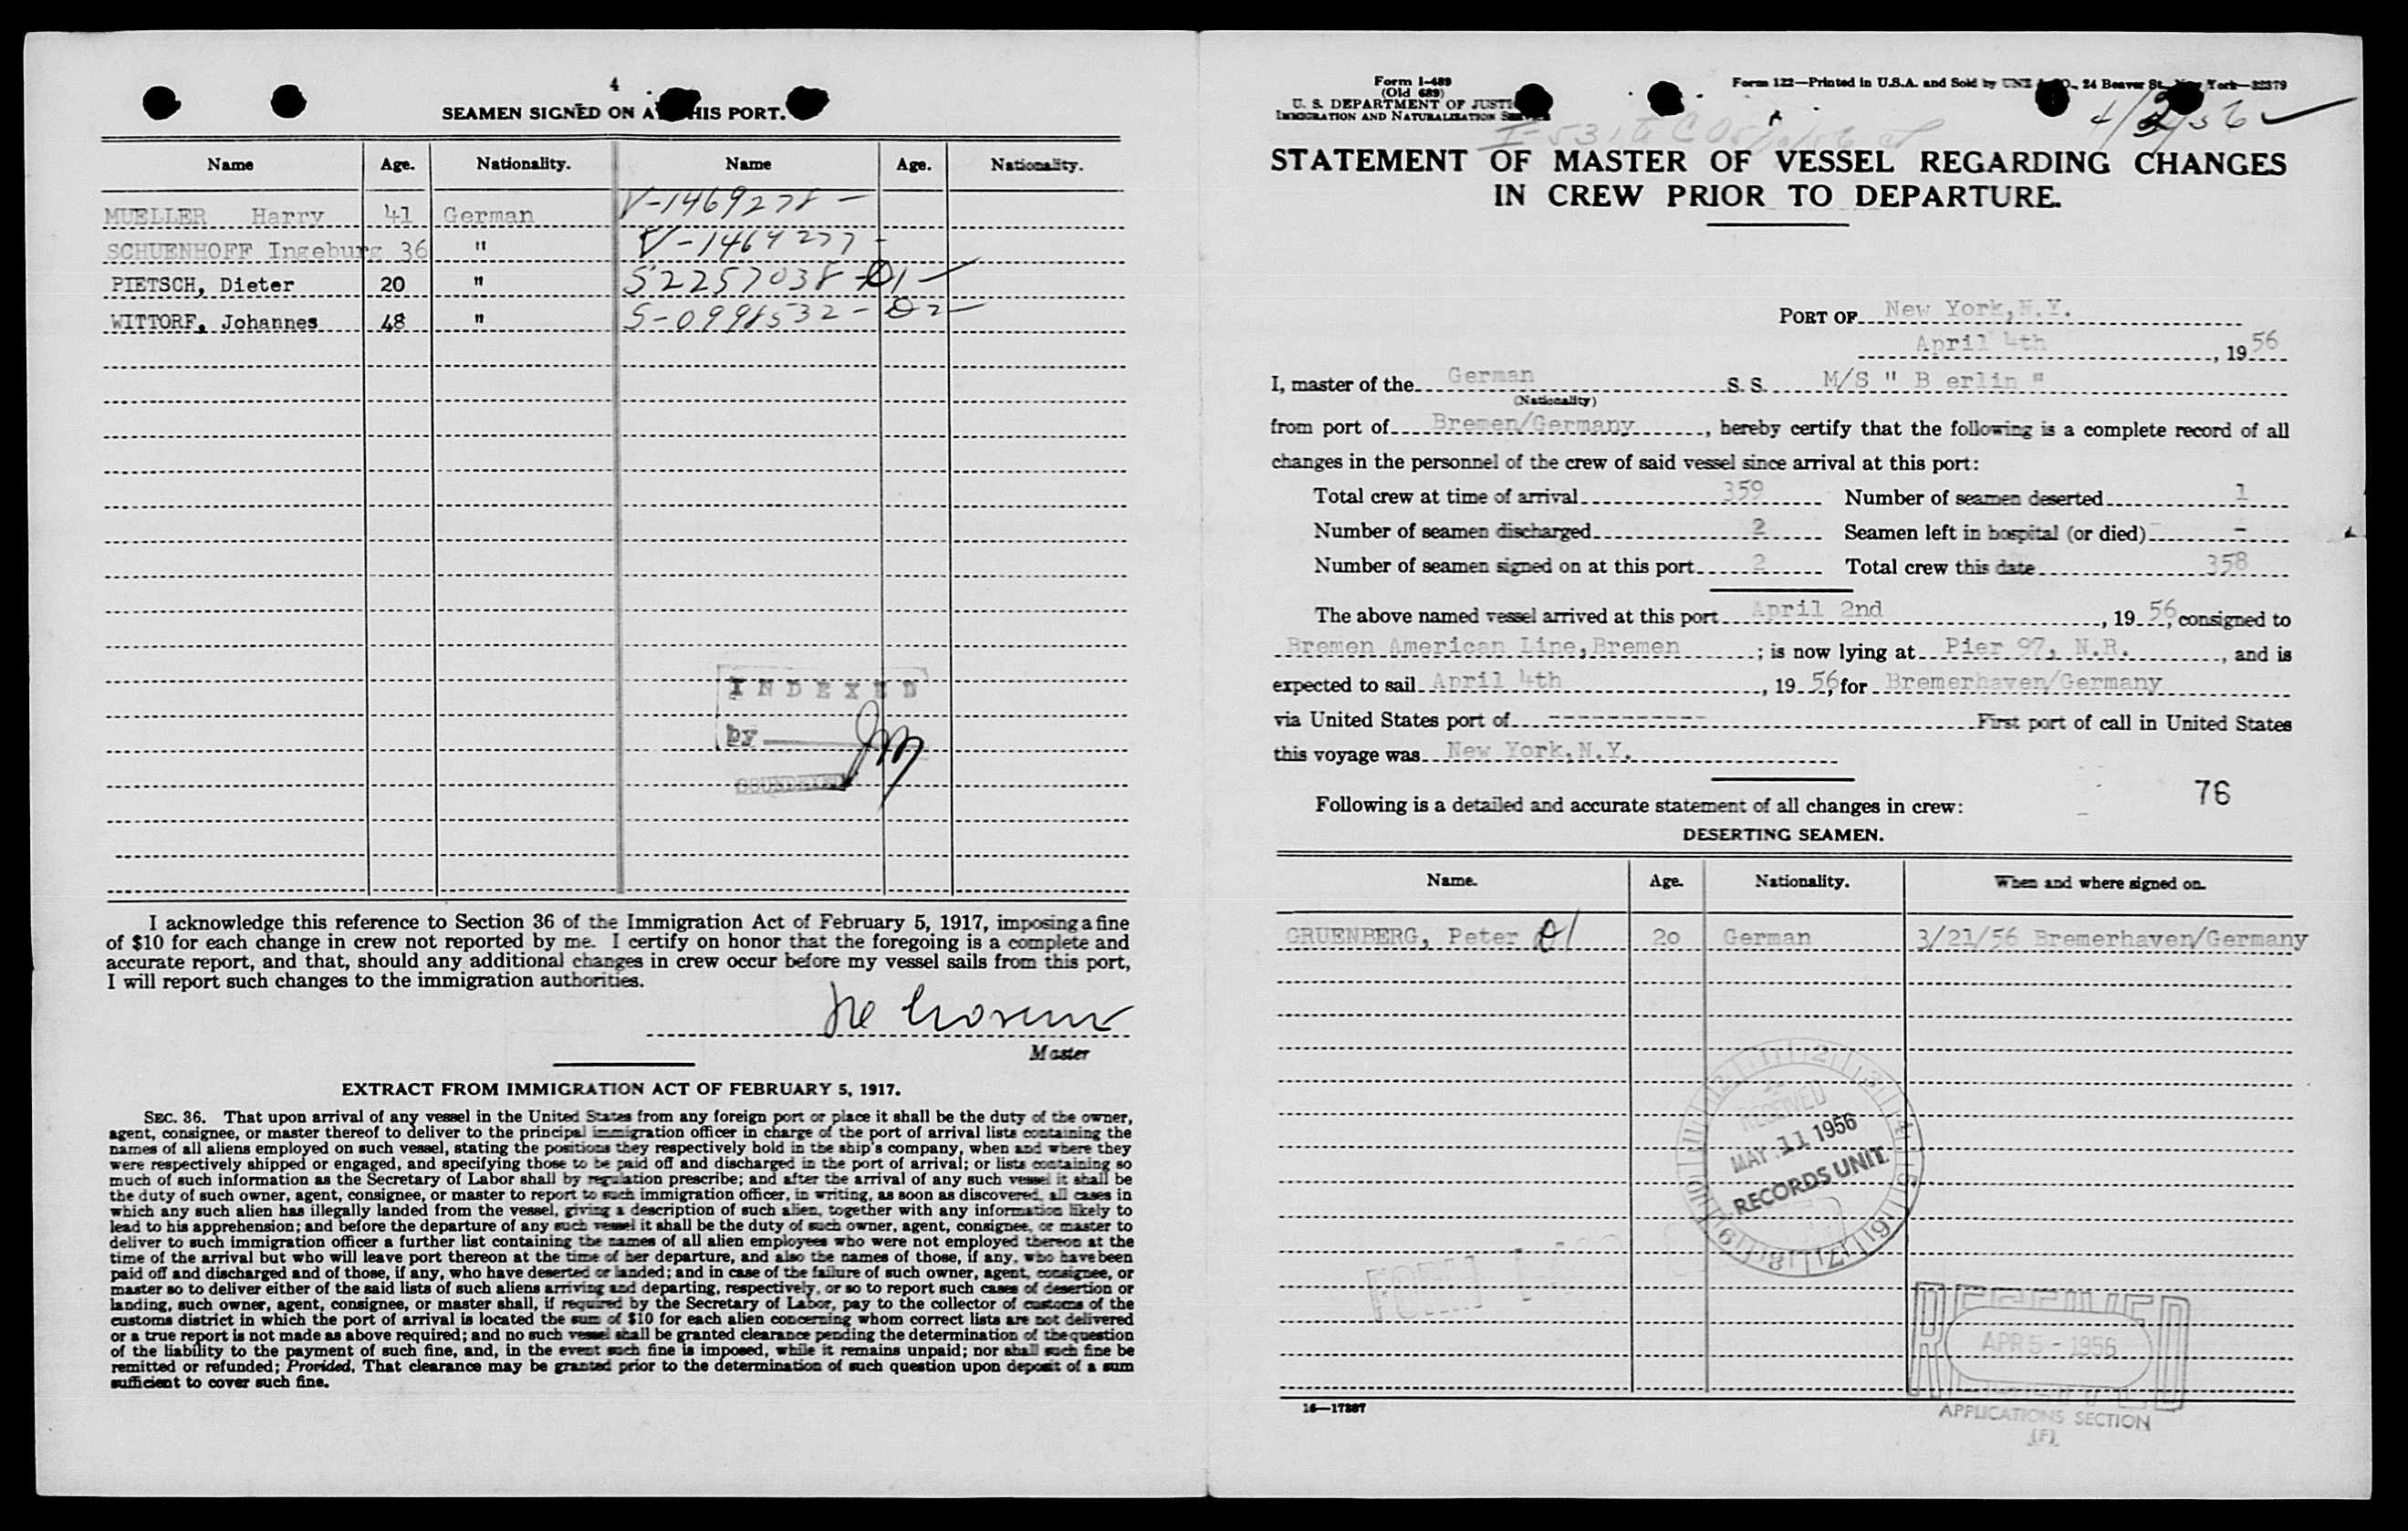 4
SEAMEN SIGNED ON AT THIS PORT.
Name Age. Nationality. Name Age. Nationality.
MUELLER Harry 41 German V-1469278 -
SCHUENHOFF Ingeburg 36 " V-1469277 -
PIETSCH, Dieter 20 " S2257038 - D1 -
WITTORF, Johannes 48 " S-0998532 - D2 -
INDEXED
by JM
I acknowledge this reference to Section 36 of the Immigration Act of February 5, 1917, imposing a fine
of $10 for each change in crew not reported by me. I certify on honor that the foregoing is a complete and
accurate report, and that, should any additional changes in crew occur before my vessel sails from this port,
I will report such changes to the immigration authorities.
Master
EXTRACT FROM IMMIGRATION ACT OF FEBRUARY 5, 1917.
SEC. 36. That upon arrival of any vessel in the United States from any foreign port or place it shall be the duty of the owner,
agent, consignee, or master thereof to deliver to the principal immigration officer in charge of the port of arrival lists containing the
names of all aliens employed on such vessel, stating the positions they respectively hold in the ship's company, when and where they
were respectively shipped or engaged, and specifying those to be paid off and discharged in the port of arrival; or lists containing so
much of such information as the Secretary of Labor shall by regulation prescribe; and after the arrival of any such vessel it shall be
the duty of such owner, agent, consignee, or master to report to such immigration officer, in writing, as soon as discovered, all cases in
which any such alien has illegally landed from the vessel, giving a description of such alien, together with any information likely to
lead to his apprehension; and before the departure of any such vessel it shall be the duty of such owner, agent, consignee, or master to
deliver to such immigration officer a further list containing the names of all alien employees who were not employed thereon at the
time of the arrival but who will leave port thereon at the time of her departure, and also the names of those, if any, who have been
paid off and discharged and of those, if any, who have deserted or landed; and in case of the failure of such owner, agent, consignee, or
master so to deliver either of the said lists of such aliens arriving and departing, respectively, or so to report such cases of desertion or
landing, such owner, agent, consignee, or master shall, if required by the Secretary of Labor, pay to the collector of customs of the
customs district in which the port of arrival is located the sum of $10 for each alien concerning whom correct lists are not delivered
or a true report is not made as above required; and no such vessel shall be granted clearance pending the determination of the question
of the liability to the payment of such fine, and, in the event such fine is imposed, while it remains unpaid; nor shall such fine be
remitted or refunded; Provided, That clearance may be granted prior to the determination of such question upon deposit of a sum
sufficient to cover such fine.
Form I-489
(Old 689)
U. S. DEPARTMENT OF JUSTICE
IMMIGRATION AND NATURALIZATION SERVICE
Form 122—Printed in U.S.A. and Sold by UNZ & CO., 24 Beaver St., New York—32379
STATEMENT OF MASTER OF VESSEL REGARDING CHANGES
IN CREW PRIOR TO DEPARTURE.
PORT OF New York, N.Y.
April 4th, 1956
I, master of the German S. S. M/S " B erlin "
(Nationality)
from port of Bremen/Germany, hereby certify that the following is a complete record of all
changes in the personnel of the crew of said vessel since arrival at this port:
Total crew at time of arrival 359 Number of seamen deserted 1
Number of seamen discharged 2 Seamen left in hospital (or died) -
Number of seamen signed on at this port 2 Total crew this date 358
The above named vessel arrived at this port April 2nd, 1956, consigned to
Bremen American Line, Bremen; is now lying at Pier 97, N.R., and is
expected to sail April 4th, 1956, for Bremerhaven/Germany
via United States port of ------------ First port of call in United States
this voyage was New York, N.Y.
76
Following is a detailed and accurate statement of all changes in crew:
DESERTING SEAMEN.
Name. Age. Nationality. When and where signed on.
GRUENBERG, Peter D1 20 German 3/21/56 Bremerhaven/Germany
RECEIVED
MAY 11 1956
RECORDS UNIT
RECEIVED
APR 5 - 1956
APPLICATIONS SECTION
(F)
16—17887